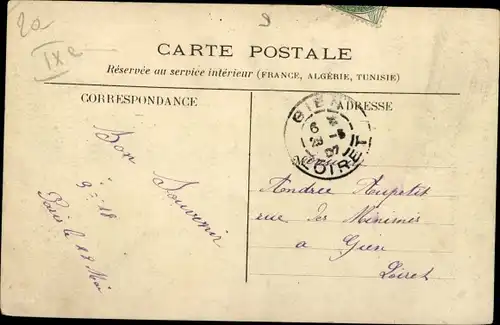 2a
IXe
CARTE POSTALE
Réservée au service intérieur (FRANCE, ALGÉRIE, TUNISIE)
CORRESPONDANCE
ADRESSE
GIEN
LOIRET
Bon
Souvenir
Paris le 22 Mai
Andrée Aupetit
rue des Minimes
a Gien
Loiret